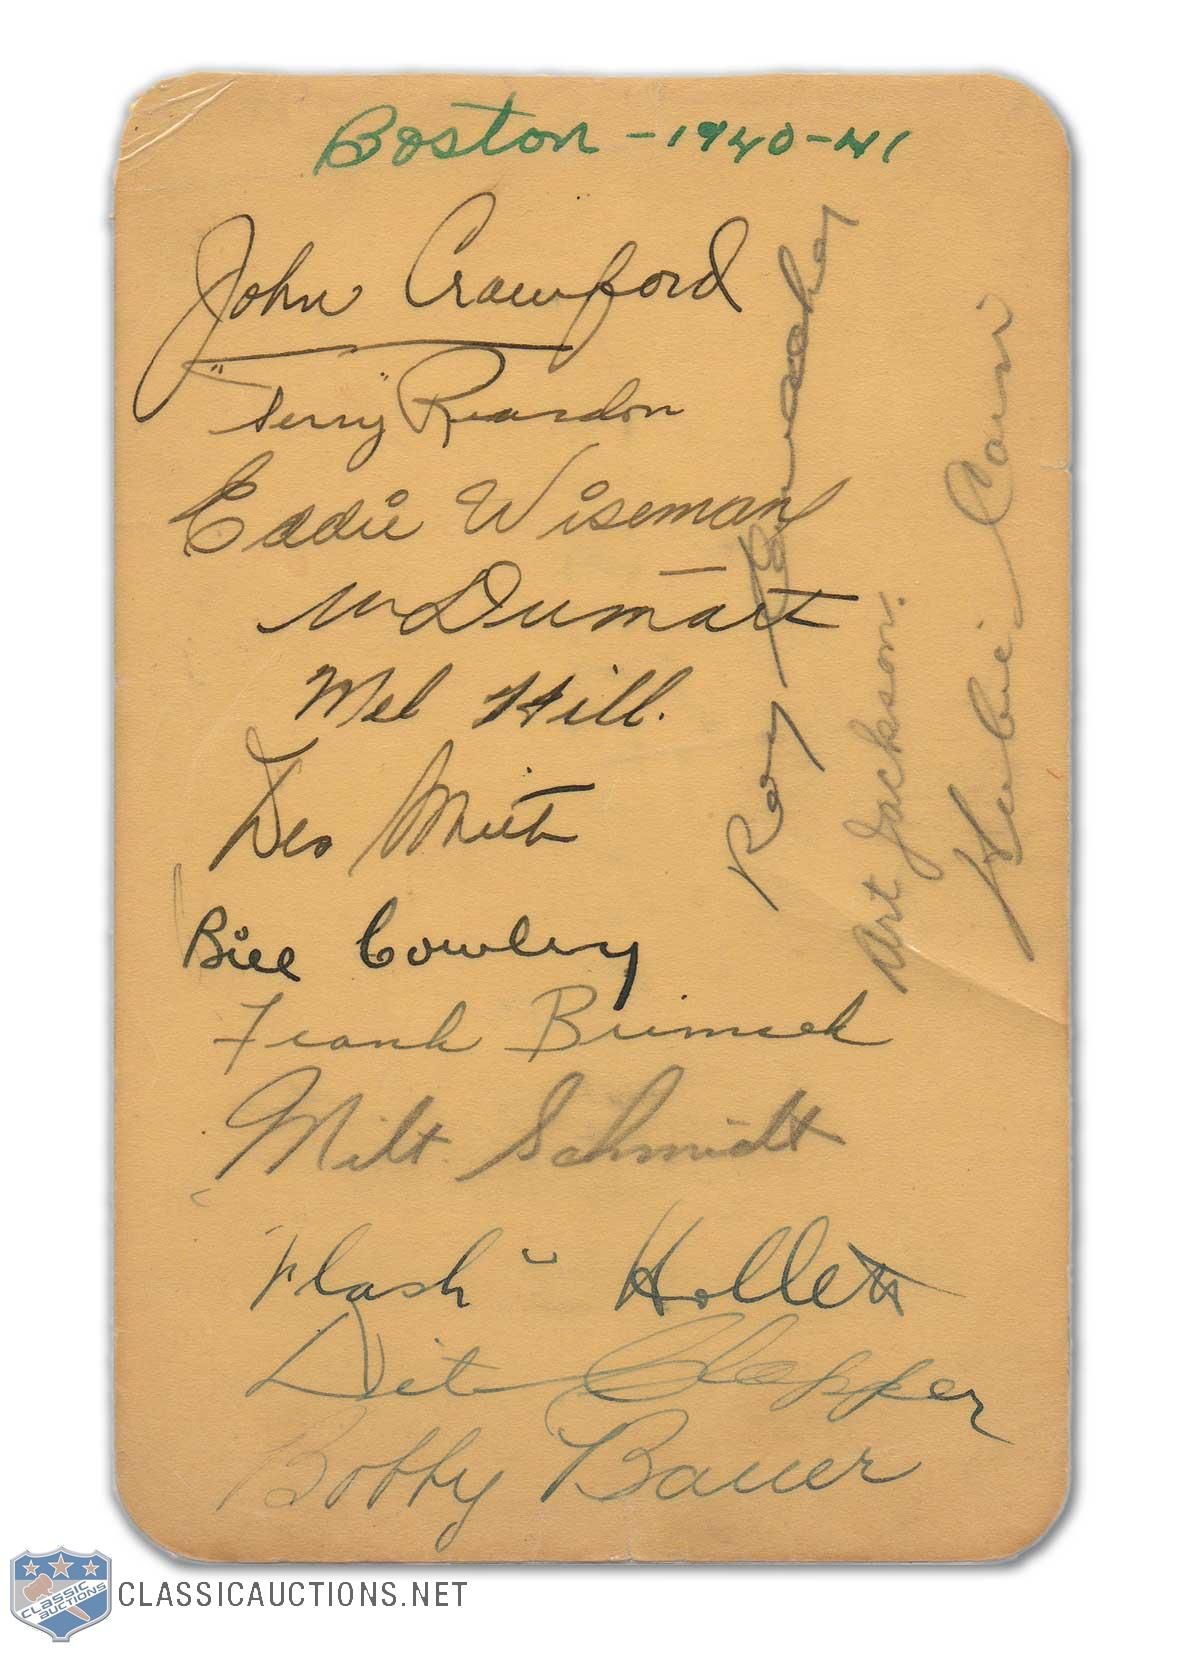 Boston - 1940-41
John Crawford
"Terry" Reardon
Eddie Wiseman
W Dumart
Mel Hill.
Des Smith
Bill Cowley
Frank Brimsek
Milt Schmidt
"Flash" Hollett
Dit Clapper
Bobby Bauer
Roy Conacher
Art Jackson.
Herbie Cain
CLASSIC AUCTIONS
CLASSICAUCTIONS.NET